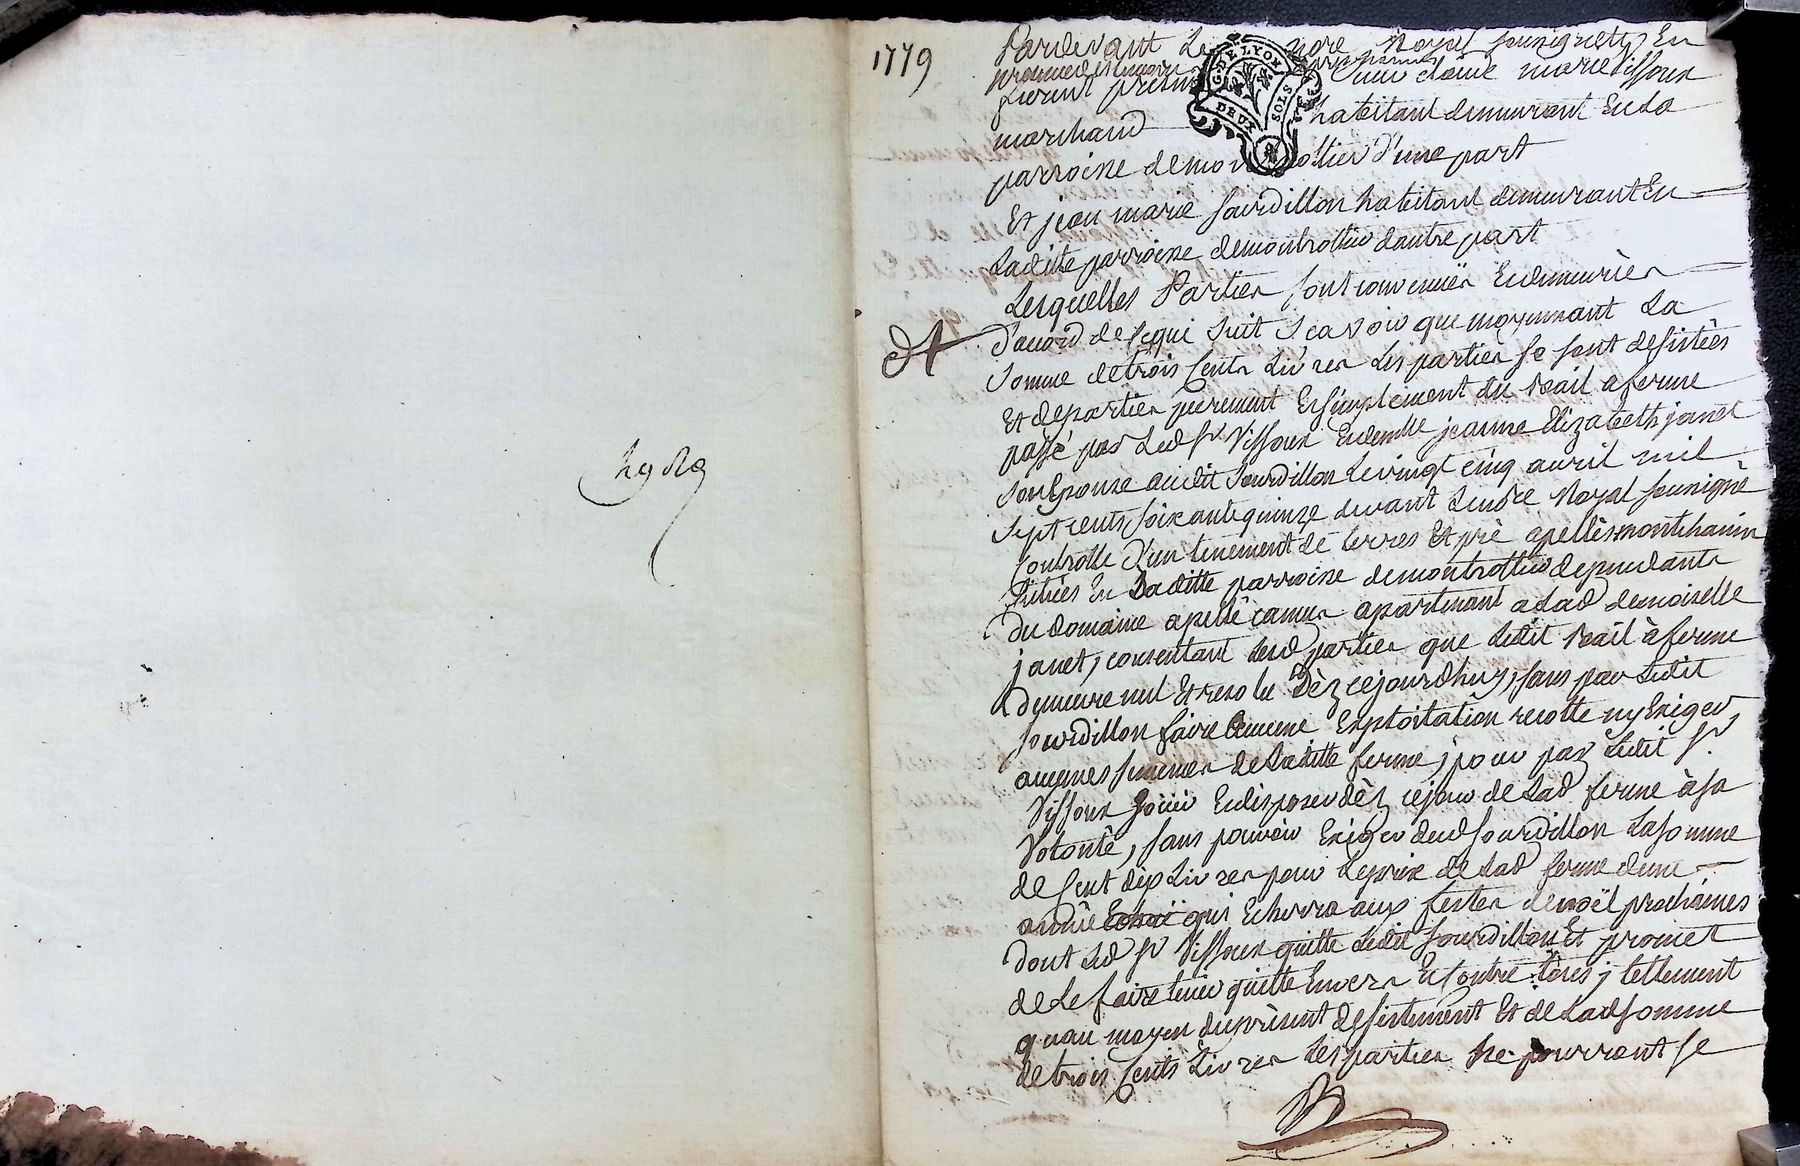 1779
Pardevant Le no.re Royal soussignéts En
furent presents sieur claude marie Vissoux
G. DE LYON
DEUX SOLS
marchand habitant demeurant En La
parroisse de montrottier d'une part
Et jean marie sourdillon habitant demeurant En
Laditte parroisse de montrottier dautre part
Lesquelles Parties sont convenües Et demeurées
D'accord de ce qui suit scavoir que moyennant La
somme de trois Cents Livres Les parties se sont desistées
Et departies purement Et simplement du Bail a ferme
passé par Led sr Vissoux Et demlle jeanne Elizabeth janet
son Epouse audit sourdillon Le vingt cinq avril mil
sept cents soixante quinze devant Le no.re Royal soussigné
Controllé D'un tenement de terres Et pré apellés montchanin
situées En Laditte parroisse de montrottier dependants
Du domaine apellé camus apartenant a Lad demoiselle
janet, consentant Lesd parties que Ledit Bail à ferme
Demeure nul Et resolu Dèz cejourdhuy, sans par Ledit
sourdillon faire Aucune Exploitation recolte ny Exiger
aucunes semences de Laditte ferme, pour par Ledit Sr
Vissoux joüir Et disposer dèz ce jour de Lad ferme à sa
Volonté, sans pouvoir Exiger dud sourdillon La somme
de Cent dix Livres pour Le prix de Lad ferme dune
année qui Echerra aux festes de noël prochaines
Dont Led sr Vissoux quitte Ledit sourdillon Et promet
de Le faire tenir quitte Envers Et Contre tous, tellement
quau moyen du présent desistement Et de Lad somme
de trois Cents Livres Les parties ne pourront se